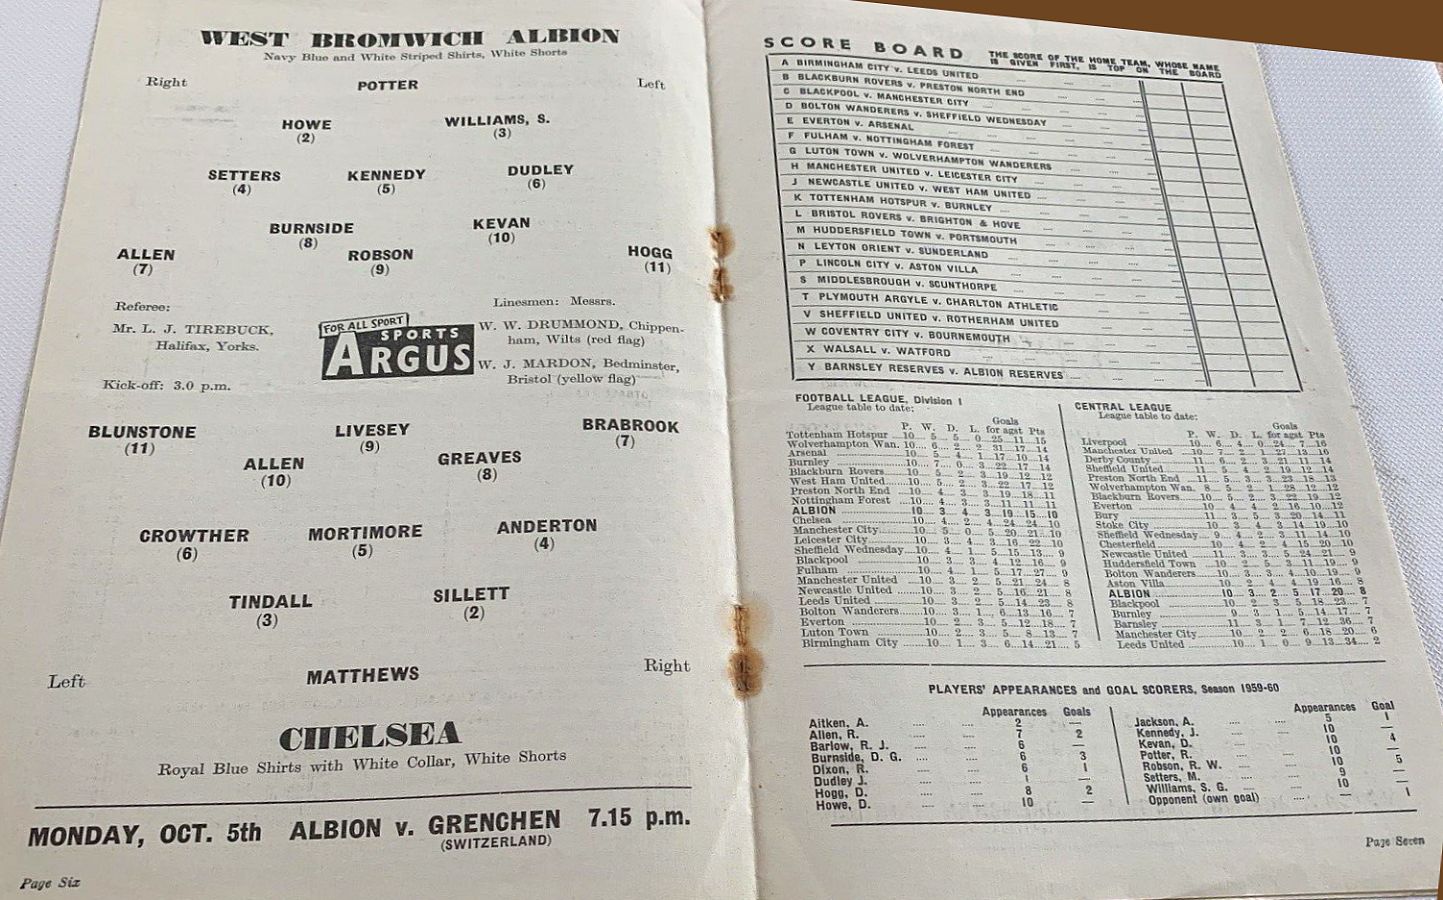 WEST BROMWICH ALBION
Navy Blue and White Striped Shirts, White Shorts
Right POTTER Left
HOWE WILLIAMS, S.
(2) (3)
SETTERS KENNEDY DUDLEY
(4) (5) (6)
BURNSIDE KEVAN
(8) (10)
ALLEN ROBSON HOGG
(7) (9) (11)
Referee: Linesmen: Messrs.
Mr. L. J. TIREBUCK, W. W. DRUMMOND, Chippen-
Halifax, Yorks. ham, Wilts (red flag)
FOR ALL SPORT
SPORTS
ARGUS
W. J. MARDON, Bedminster,
Kick-off: 3.0 p.m. Bristol (yellow flag)
BLUNSTONE LIVESEY BRABROOK
(11) (9) (7)
ALLEN GREAVES
(10) (8)
CROWTHER MORTIMORE ANDERTON
(6) (5) (4)
TINDALL SILLETT
(3) (2)
Left MATTHEWS Right
CHELSEA
Royal Blue Shirts with White Collar, White Shorts
MONDAY, OCT. 5th ALBION v. GRENCHEN 7.15 p.m.
(SWITZERLAND)
Page Six
SCORE BOARD
THE SCORE OF THE HOME TEAM, WHOSE NAME
IS GIVEN FIRST, IS TOP ON THE BOARD
A BIRMINGHAM CITY v. LEEDS UNITED
B BLACKBURN ROVERS v. PRESTON NORTH END
C BLACKPOOL v. MANCHESTER CITY
D BOLTON WANDERERS v. SHEFFIELD WEDNESDAY
E EVERTON v. ARSENAL
F FULHAM v. NOTTINGHAM FOREST
G LUTON TOWN v. WOLVERHAMPTON WANDERERS
H MANCHESTER UNITED v. LEICESTER CITY
J NEWCASTLE UNITED v. WEST HAM UNITED
K TOTTENHAM HOTSPUR v. BURNLEY
L BRISTOL ROVERS v. BRIGHTON & HOVE
M HUDDERSFIELD TOWN v. PORTSMOUTH
N LEYTON ORIENT v. SUNDERLAND
P LINCOLN CITY v. ASTON VILLA
S MIDDLESBROUGH v. SCUNTHORPE
T PLYMOUTH ARGYLE v. CHARLTON ATHLETIC
V SHEFFIELD UNITED v. ROTHERHAM UNITED
W COVENTRY CITY v. BOURNEMOUTH
X WALSALL v. WATFORD
Y BARNSLEY RESERVES v. ALBION RESERVES
FOOTBALL LEAGUE, Division I
League table to date:
Goals
P. W. D. L. for agst Pts
Tottenham Hotspur 10 5 5 0 25 11 15
Wolverhampton Wan. 10 6 2 2 31 17 14
Arsenal 10 5 4 1 17 10 14
Burnley 10 7 0 3 22 17 14
Blackburn Rovers 10 5 2 3 19 12 12
West Ham United 10 5 2 3 22 17 12
Preston North End 10 4 3 3 19 18 11
Nottingham Forest 10 4 3 3 11 11 11
ALBION 10 3 4 3 19 15 10
Chelsea 10 4 2 4 24 24 10
Manchester City 10 5 0 5 20 21 10
Leicester City 10 3 4 3 16 22 10
Sheffield Wednesday 10 4 1 5 15 13 9
Blackpool 10 3 3 4 12 16 9
Fulham 10 4 1 5 17 27 9
Manchester United 10 3 2 5 21 24 8
Newcastle United 10 3 2 5 16 21 8
Leeds United 10 3 2 5 14 23 8
Bolton Wanderers 10 3 1 6 13 16 7
Everton 10 2 3 5 12 18 7
Luton Town 10 2 3 5 8 13 7
Birmingham City 10 1 3 6 14 21 5
CENTRAL LEAGUE
League table to date:
Goals
P. W. D. L. for agst Pts
Liverpool 10 6 4 0 24 7 16
Manchester United 10 7 2 1 27 13 16
Derby County 11 6 2 3 21 11 14
Sheffield United 11 5 4 2 19 12 14
Preston North End 11 5 3 3 23 18 13
Wolverhampton Wan. 8 5 2 1 28 12 12
Blackburn Rovers 10 5 2 3 22 19 12
Everton 10 4 4 2 16 10 12
Bury 11 3 5 3 20 14 11
Stoke City 10 3 4 3 14 19 10
Sheffield Wednesday 9 4 2 3 11 14 10
Chesterfield 10 4 2 4 15 20 10
Newcastle United 11 3 3 5 24 21 9
Huddersfield Town 10 2 5 3 11 19 9
Bolton Wanderers 10 3 3 4 10 19 9
Aston Villa 10 2 4 4 19 16 8
ALBION 10 3 2 5 17 20 8
Blackpool 10 2 3 5 18 23 7
Burnley 9 3 1 5 14 17 7
Barnsley 11 3 1 7 12 36 7
Manchester City 10 2 2 6 18 20 6
Leeds United 10 1 0 9 13 34 2
PLAYERS' APPEARANCES and GOAL SCORERS, Season 1959-60
Appearances Goals
Aitken, A. 2 —
Allen, R. 7 2
Barlow, R. J. 6 —
Burnside, D. G. 6 3
Dixon, R. 6 1
Dudley J. 1 —
Hogg, D. 8 2
Howe, D. 10 —
Appearances Goal
Jackson, A. 5 1
Kennedy, J. 10 —
Kevan, D. 10 4
Potter, R. 10 —
Robson, R. W. 10 5
Setters, M. 9 —
Williams, S. G. 10 —
Opponent (own goal) — 1
Page Seven